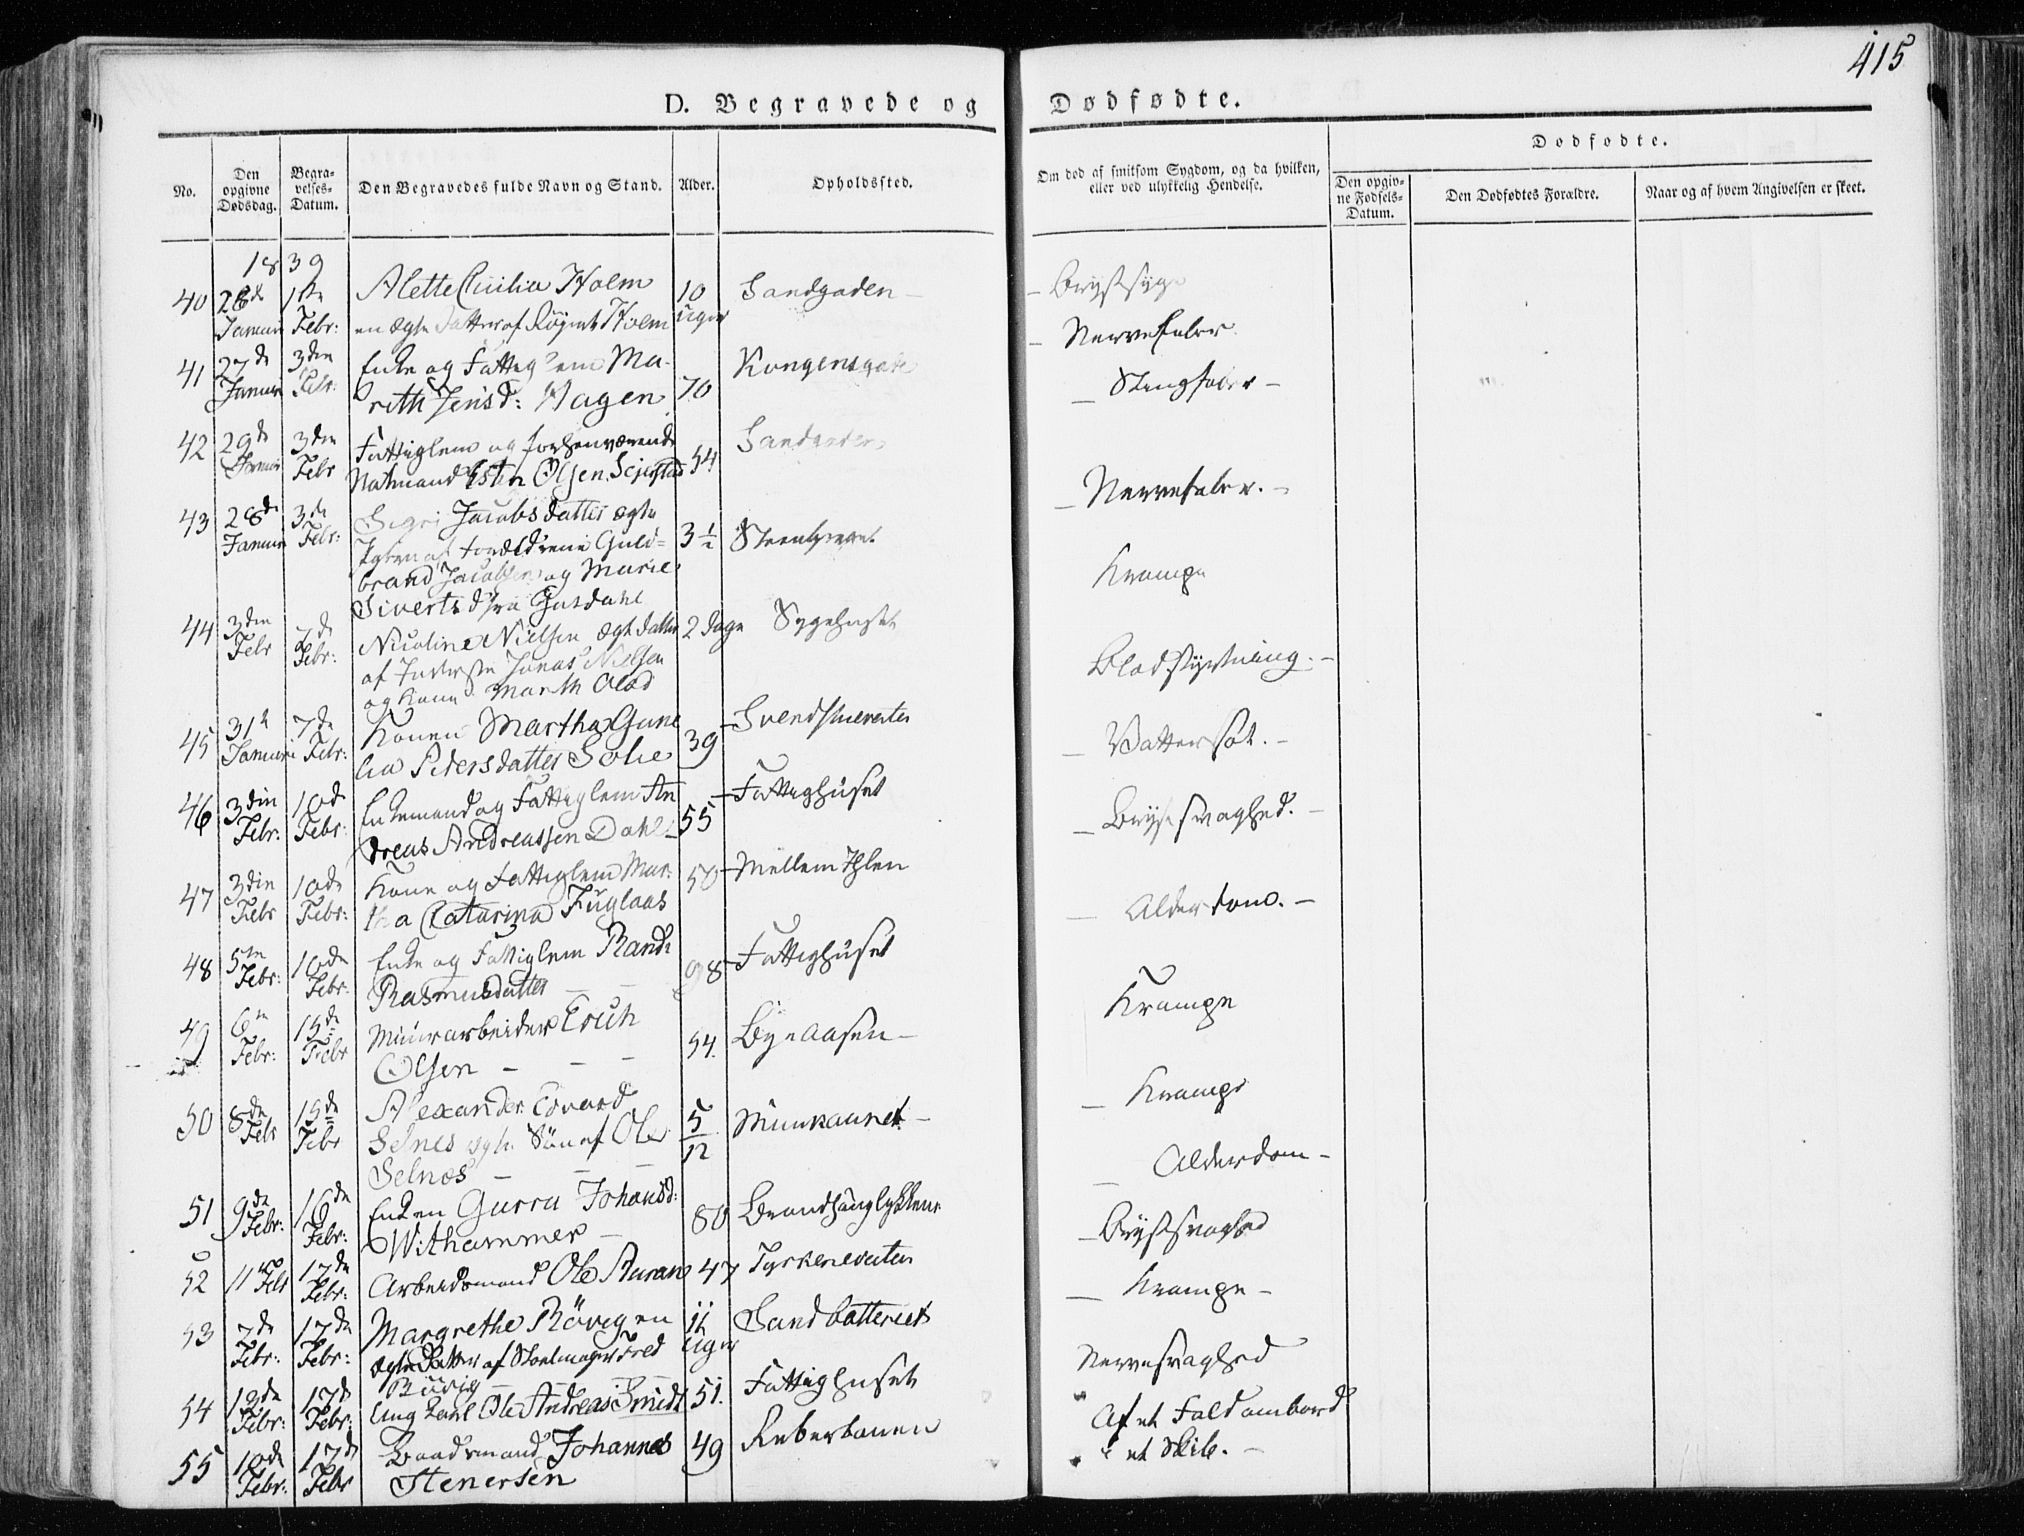 415
D. Begravede og Dødfødte.
No.
Den opgivne Dødsdag.
Begravelses-Datum.
Den Begravedes fulde Navn og Stand.
Alder.
Opholdssted.
Om død af smitsom Sygdom, og da hvilken,
eller ved ulykkelig Hendelse.
Dødfødte.
Den opgivne Fødsels-Datum.
Den Dødfødtes Forældre.
Naar og af hvem Angivelsen er skeet.
1839
40 28d 1ste Alette Cicilia Holm 10 Sandgaden – – Brystsyge
Januar Febr: en ægte Datter af Holm Uger
41 27de 3die Enke og Fattiglem Ma- Kongensgade – Nervefeber
Januar Febr: rith Jensd: Hagen 70
42 29de 3die Fattiglem og forhenværende Sandgaden – Stingfeber –
Januar Febr Natmand Esten Olsen 54
43 28de 3die Sigri Jacobsdatter ægte – Nervefeber. –
Januar Febr: af Forældrene Guld- 3½ Steenberget
brand Jacobsen og Marie
Sivertsd fra Guldahl
44 3die 7de Nicoline Nielsen ægte datter 2 Dage Sygehuset Krampe
Febr Febr: af Inderste Jonas Nielsen
og Kone Marth Olsd
45 31te 7de Konen Martha Gune 39 – Svendskueveiten Blodstyrtning. –
Januar Febr: lia Pedersdatter Solie
46 3die 10de Enkemand og Fattiglem An 55 – Fattighuset – Vattersot. –
Febr: Febr: dreas Andreassen Dahl
47 3die 10de Kone og Fattiglem Mar- 50 – Mellem Ihlen – Brystsvaghed. –
Febr Febr: tha Catarina Fuglaas
48 5te 10de Enke og Fattiglem Randi 98 – Fattighuset – Alderdom. –
Febr: Febr: Rasmusdatter – –
49 6te 15de Muurarbeider Erich 54. Byeaasen – Krampe
Febr: Febr Olsen – –
50 8de 15de Alexander Edvard 5/12 Munkaunet – – Krampe
Febr Febr Selnes ægte Søn af Ole
Selnæs – – –
51 9de 16de Enken Gurru Johansd: 80 – Alderdom –
Febr: Febr: Withammer –
52 11te 17de Arbeidsmand Ole Auran 47 Tyskerveiten – Brystsvaghed
Febr Febr:
53 7de 17de Margrethe Røvig en 11 Sandbatteriet – Krampe –
Febr: Febr: ægte Datter af Fred Uger
Rüvig – –
54 12de 17de Ung Karl Ole Andreas Smidt 51. Fattighuset Nervesvaghed
Febr: Febr:
55 10de 17de Baadsmand Johannes 49 Reberbanen Af et Fald ombord
Febr: Febr Stenersen i et Skib. –